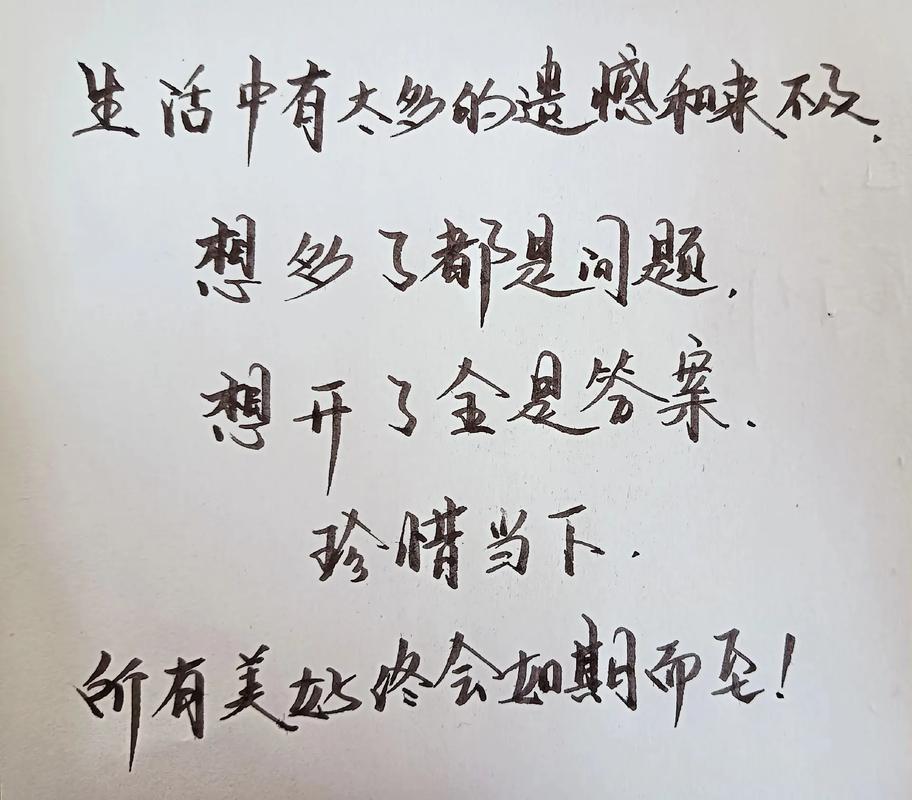 生活中有太多的遗憾和来不及.
想多了都是问题.
想开了全是答案.
珍惜当下.
所有美好终会如期而至!